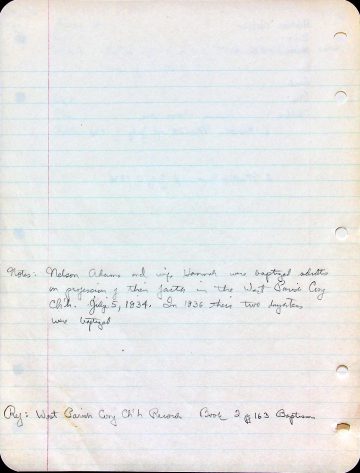 Notes: Nelson Adams and wife Hannah were baptized adults
on profession of their faith in the West Parish Cong
Ch'h. July 5, 1834. In 1836 their two daughters
were baptized
Ref: West Parish Cong Ch'h Records Book 2 pg 163 Baptisms